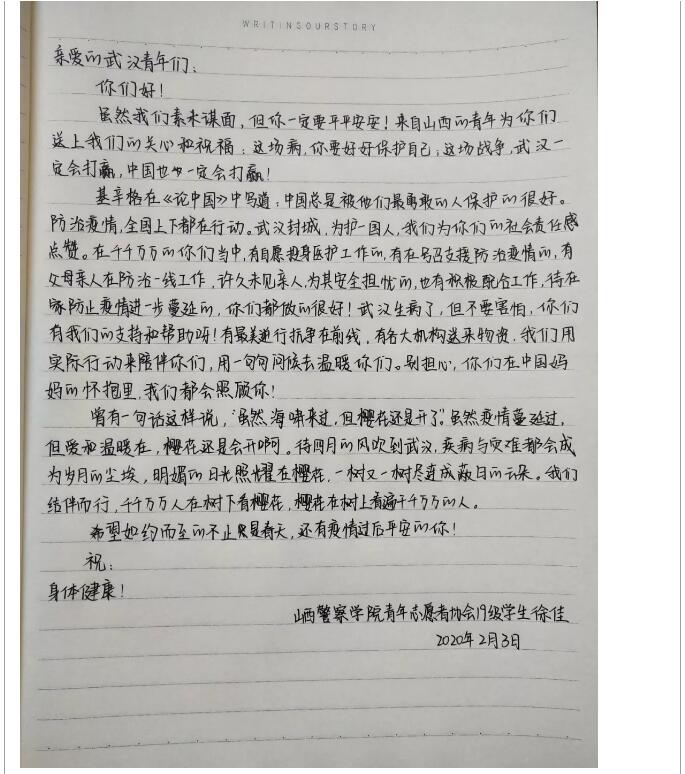 WRITINSOURSTORY
亲爱的武汉青年们：
你们好！
虽然我们素未谋面，但你一定要平平安安！来自山西的青年为你们
送上我们的关心和祝福：这场病，你要好好保护自己；这场战争，武汉一
定会打赢，中国也一定会打赢！
基辛格在《论中国》中写道：中国总是被他们最勇敢的人保护的很好。
防治疫情，全国上下都在行动。武汉封城，为护一国人，我们为你们的社会责任感
点赞。在千千万万的你们当中，有自愿投身医护工作的，有在号召支援防治疫情的，有
父母亲人在防治一线工作，许久未见亲人，为其安全担忧的，也有积极配合工作，待在
家防止疫情进一步蔓延的，你们都做的很好！武汉生病了，但不要害怕，你们
有我们的支持和帮助呀！有最美逆行抗争在前线，有各大机构送来物资，我们用
实际行动来陪伴你们，用一句句问候去温暖你们。别担心，你们在中国妈
妈的怀抱里，我们都会照顾你！
曾有一句话这样说，“虽然海啸来过，但樱花还是开了”。虽然疫情蔓延过，
但爱和温暖在，樱花还是会开啊。待四月的风吹到武汉，疾病与灾难都会成
为岁月的尘埃，明媚的日光照耀在樱花，一树又一树尽连成蔽日的云朵。我们
结伴而行，千千万万人在树下看樱花，樱花在树上看遍千千万万的人。
希望如约而至的不止只是春天，还有疫情过后平安的你！
祝：
身体健康！
山西警察学院青年志愿者协会19级学生徐佳
2020年2月3日